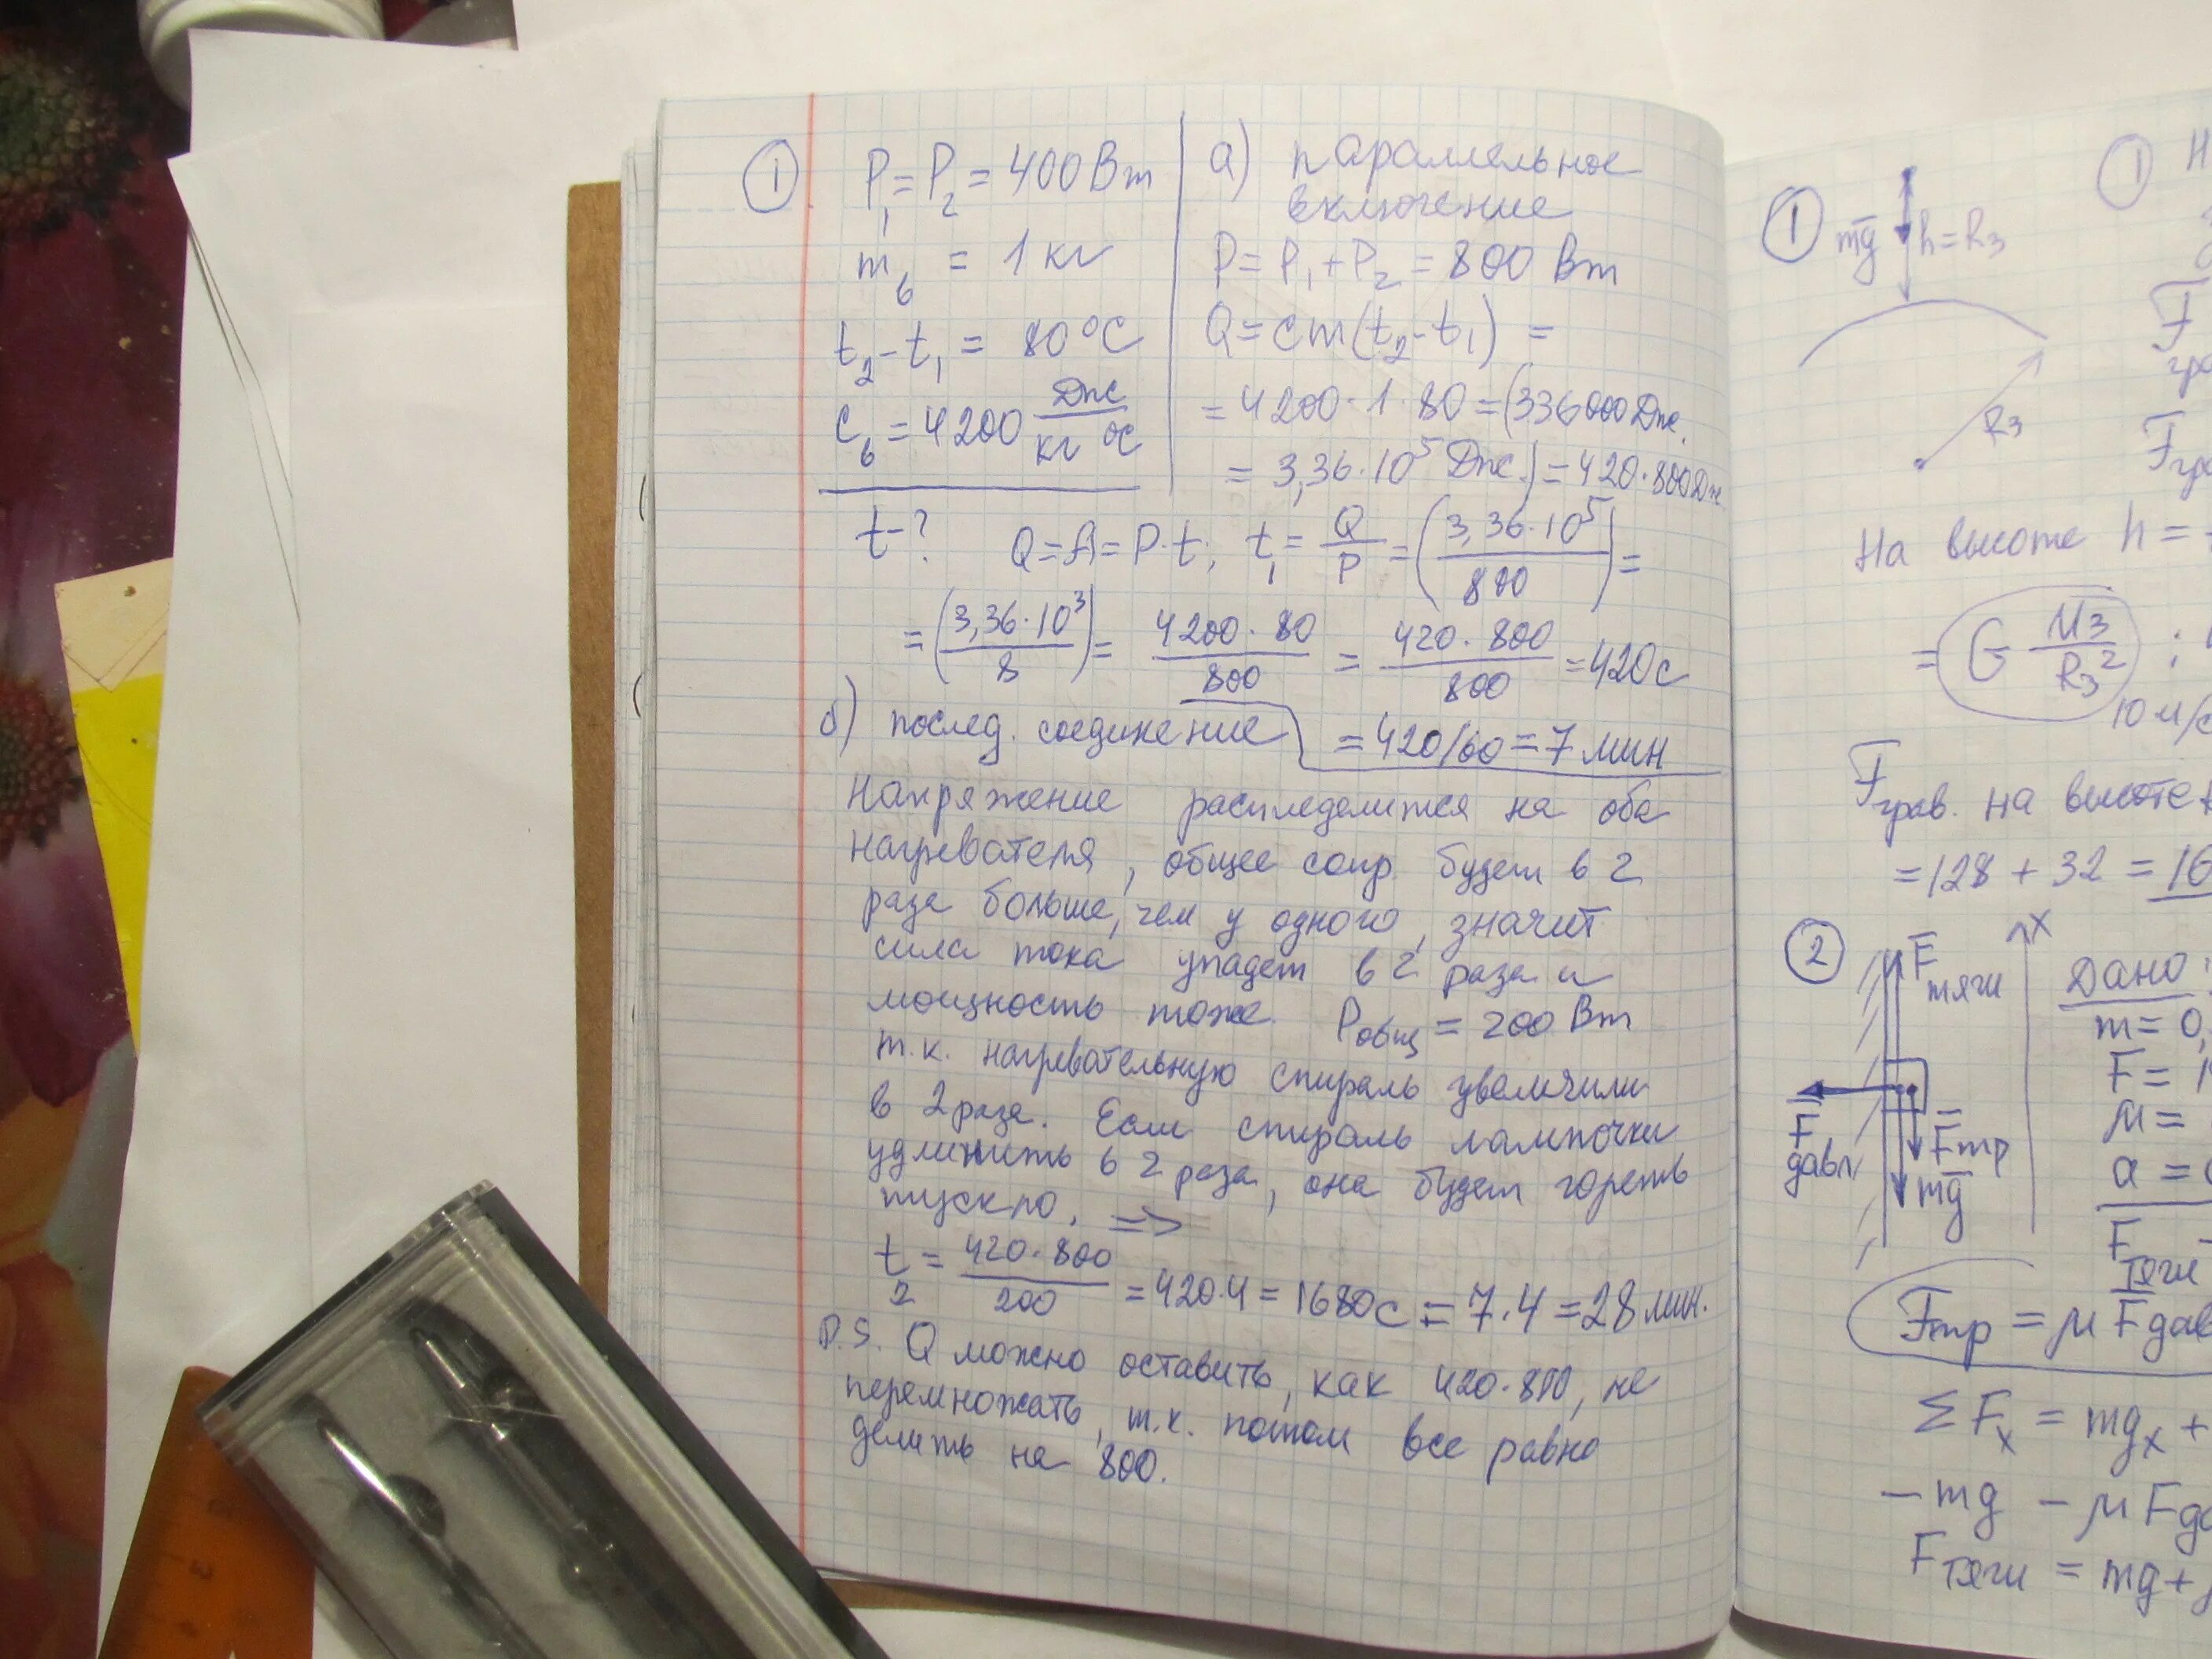 1
P₁ = P₂ = 400 Вт
m_в = 1 кг
t₂ - t₁ = 80 °C
c_в = 4200 Дж / кг °C
t - ?
а) параллельное
включение
P = P₁ + P₂ = 800 Вт
Q = cm(t₂ - t₁) =
= 4200 · 1 · 80 = (336000 Дж.
= 3,36 · 10⁵ Дж.) = 420 · 800 Дж.
Q = A = P · t; t₁ = Q / P = (3,36 · 10⁵ / 800) =
= (3,36 · 10³ / 8) = 4200 · 80 / 800 = 420 · 800 / 800 = 420 с
= 420/60 = 7 мин
б) послед. соединение
Напряжение распределится на оба
нагревателя, общее сопр. будет в 2
раза больше, чем у одного, значит
сила тока упадет в 2 раза и
мощность тоже. Pобщ = 200 Вт
т.к. нагревательную спираль увеличили
в 2 раза. Если спираль лампочки
удлинить в 2 раза, она будет гореть
тускло. =>
t₂ = 420 · 800 / 200 = 420 · 4 = 1680 с = 7 · 4 = 28 мин.
P.S. Q можно оставить, как 420 · 800, не
перемножать, т.к. потом все равно
делить на 800.
1
mg h = Rз
Rз
1
На высоте h =
= G Mз / Rз² ;
10 м/с
Fграв. на высоте
= 128 + 32 = 16
2
Fтяги
x
Fдавл
Fтр
mg
Дано:
m = 0,
F = 1
μ =
a =
Fтяги -
Fтр = μ Fдав
Σ Fx = mgx +
- mg - μ Fда
Fтяги = mg +